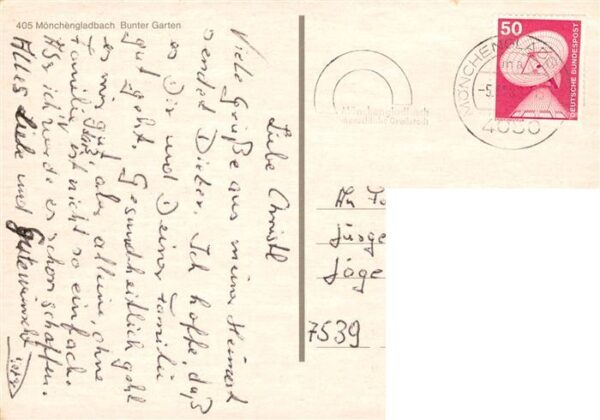 405 Mönchengladbach Bunter Garten
Liebe Christl
Viele Grüße aus meiner Heimat
sendet Dieter. Ich hoffe, daß
es Dir und Deiner Familie
gut geht. Gesundheitlich geht
es mir gut, aber alleine, ohne
Familie ist nicht so einfach.
Aber ich werde es schon schaffen.
Alles Liebe und Gute wünscht
MÖNCHENGLADB
-5.
4050
Mönchengladbach
menschliche Großstadt
50
DEUTSCHE BUNDESPOST
An
Jürge
7539